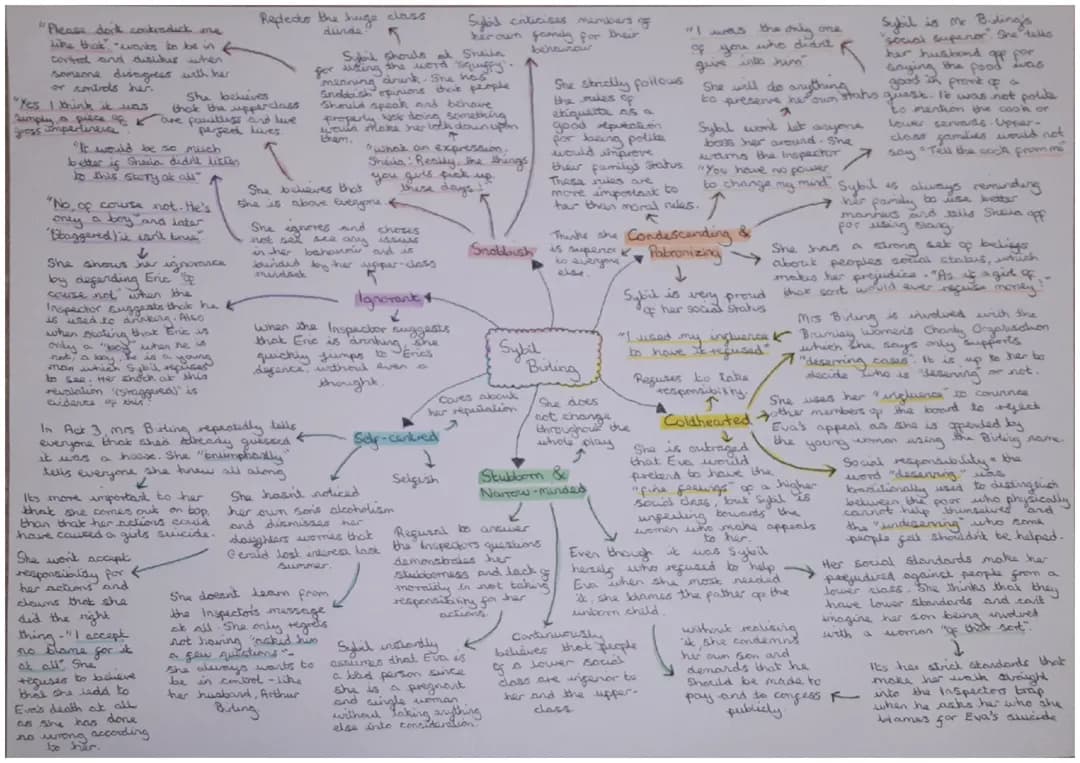 "Please don't contradict me
like that" - wants to be in
control and dislikes when
someone disagrees with her
or controls her.
"Yes I think it was
simply a piece of
gross impertinence.
She believes
that the upperclass
are faultless and live
perfect lives
"It would be so much
better if Sheila didn't listen
to this story at all"
"No, of course not. He's
only a boy" and later
'(staggered) it isn't true"
She shows her ignorance
by defending Eric "of
course not" when the
Inspector suggests that he
is used to drinking. Also
when stating that Eric is
only a "boy" when he is
not, a boy, he is a young
man which Sybil refuses
to see. Her shock at this
revelation "(staggered)" is
evidence of this.
Reflects the huge class
divide.
Sybil shouts at Sheila
for using the word "squiffy"
meaning drunk. She has
snobbish opinions that people
should speak and behave
properly. Not doing something
would make her look down upon
them.
"what an expression,
Sheila! Really, the things
you girls pick up
these days!"
She believes that
she is above everyone
She ignores and choses
not see see any issues
in her behaviour and is
blinded by her upper-class
mindset
Snobbish
Ignorant
When the Inspector suggests
that Eric is drinking, she
quickly jumps to Eric's
defence, without even a
thought.
Sybil criticises members of
her own family for their
behaviour
She strictly follows
the rules of
etiquette as a
good reputation
for being polite
would improve
their family's status
These rules are
more important to
her than moral rules.
Thinks she
is superior
to everyone
else.
Condescending &
Patronizing
"I was the only one
of you who didn't
give into him"
She will do anything
to preserve her own status
Sybil won't let anyone
boss her around. She
warns the Inspector
"You have no power
to change my mind"
Sybil is Mr Birling's
"social superior". She tells
her husband off for
saying the food was
good in front of a
guest. It was not polite
to mention the cook or
lower servants. Upper-
class families would not
say "Tell the cook from me"
Sybil is always reminding
her family to use better
manners and tells Sheila off
for using slang.
She has a strong set of beliefs
about peoples social status, which
makes her prejudice - "As if a girl of
that sort would ever refuse money!"
Sybil is very proud
of her social status
Sybil
Birling
"I used my influence
to have it refused"
Refuses to take
responsibility.
Coldhearted
Mrs Birling is involved with the
Brumley Women's Charity Organisation
which she says only supports
"deserving cases". It is up to her to
decide who is "deserving" or not.
She uses her "influence" to convince
other members of the board to reject
Eva's appeal as she is offended by
the young woman using the Birling name.
Social responsibility = the
word "deserving" was
traditionally used to distinguish
between the poor who physically
cannot help themselves and
the "undeserving" who some
people felt shouldn't be helped.
She is outraged
that Eva would
pretend to have the
"fine feelings" of a higher
social class, but Sybil is
unfeeling towards the
women who make appeals
to her.
Cares about
her reputation
Self-centred
Selfish
She does
not change
throughout the
whole play
Stubborn &
Narrow-minded
In Act 3, Mrs Birling repeatedly tells
everyone that she'd already guessed
it was a hoax. She "triumphantly"
tells everyone she knew all along
Its more important to her
that she comes out on top,
than that her actions could
have caused a girls suicide.
She hasn't noticed
her own sons alcoholism
and dismisses her
daughters worries that
Gerald lost interest last
summer.
She won't accept
responsibility for
her actions and
claims that she
did the right
thing - "I accept
no blame for it
at all". She
refuses to believe
that she led to
Eva's death at all
as she has done
no wrong according
to her.
She doesn't learn from
the Inspector's message
at all. She only regrets
not having "asked him
a few questions" -
she always wants to
be in control - like
her husband, Arthur
Birling.
Refusal to answer
the Inspectors questions
demonstrates her
stubborness and lack of
morality in not taking
responsibility for her
actions.
Sybil instantly
assumes that Eva is
a bad person since
she is a pregnant
and single woman
without taking anything
else into consideration.
Continuously
believes that people
of a lower social
class are inferior to
her and the upper-
class
Even though it was Sybil
herself who refused to help
Eva when she most needed
it, she blames the father of the
unborn child.
without realising
it, she condemns
her own son and
demands that he
should be made to
pay and so confess
publicly.
Her social standards make her
prejudiced against people from a
lower class. She thinks that they
have lower standards and can't
imagine her son being involved
with a woman "of that sort".
Its her strict standards that
make her walk straight
into the Inspectors trap
when he asks her who she
blames for Eva's suicide